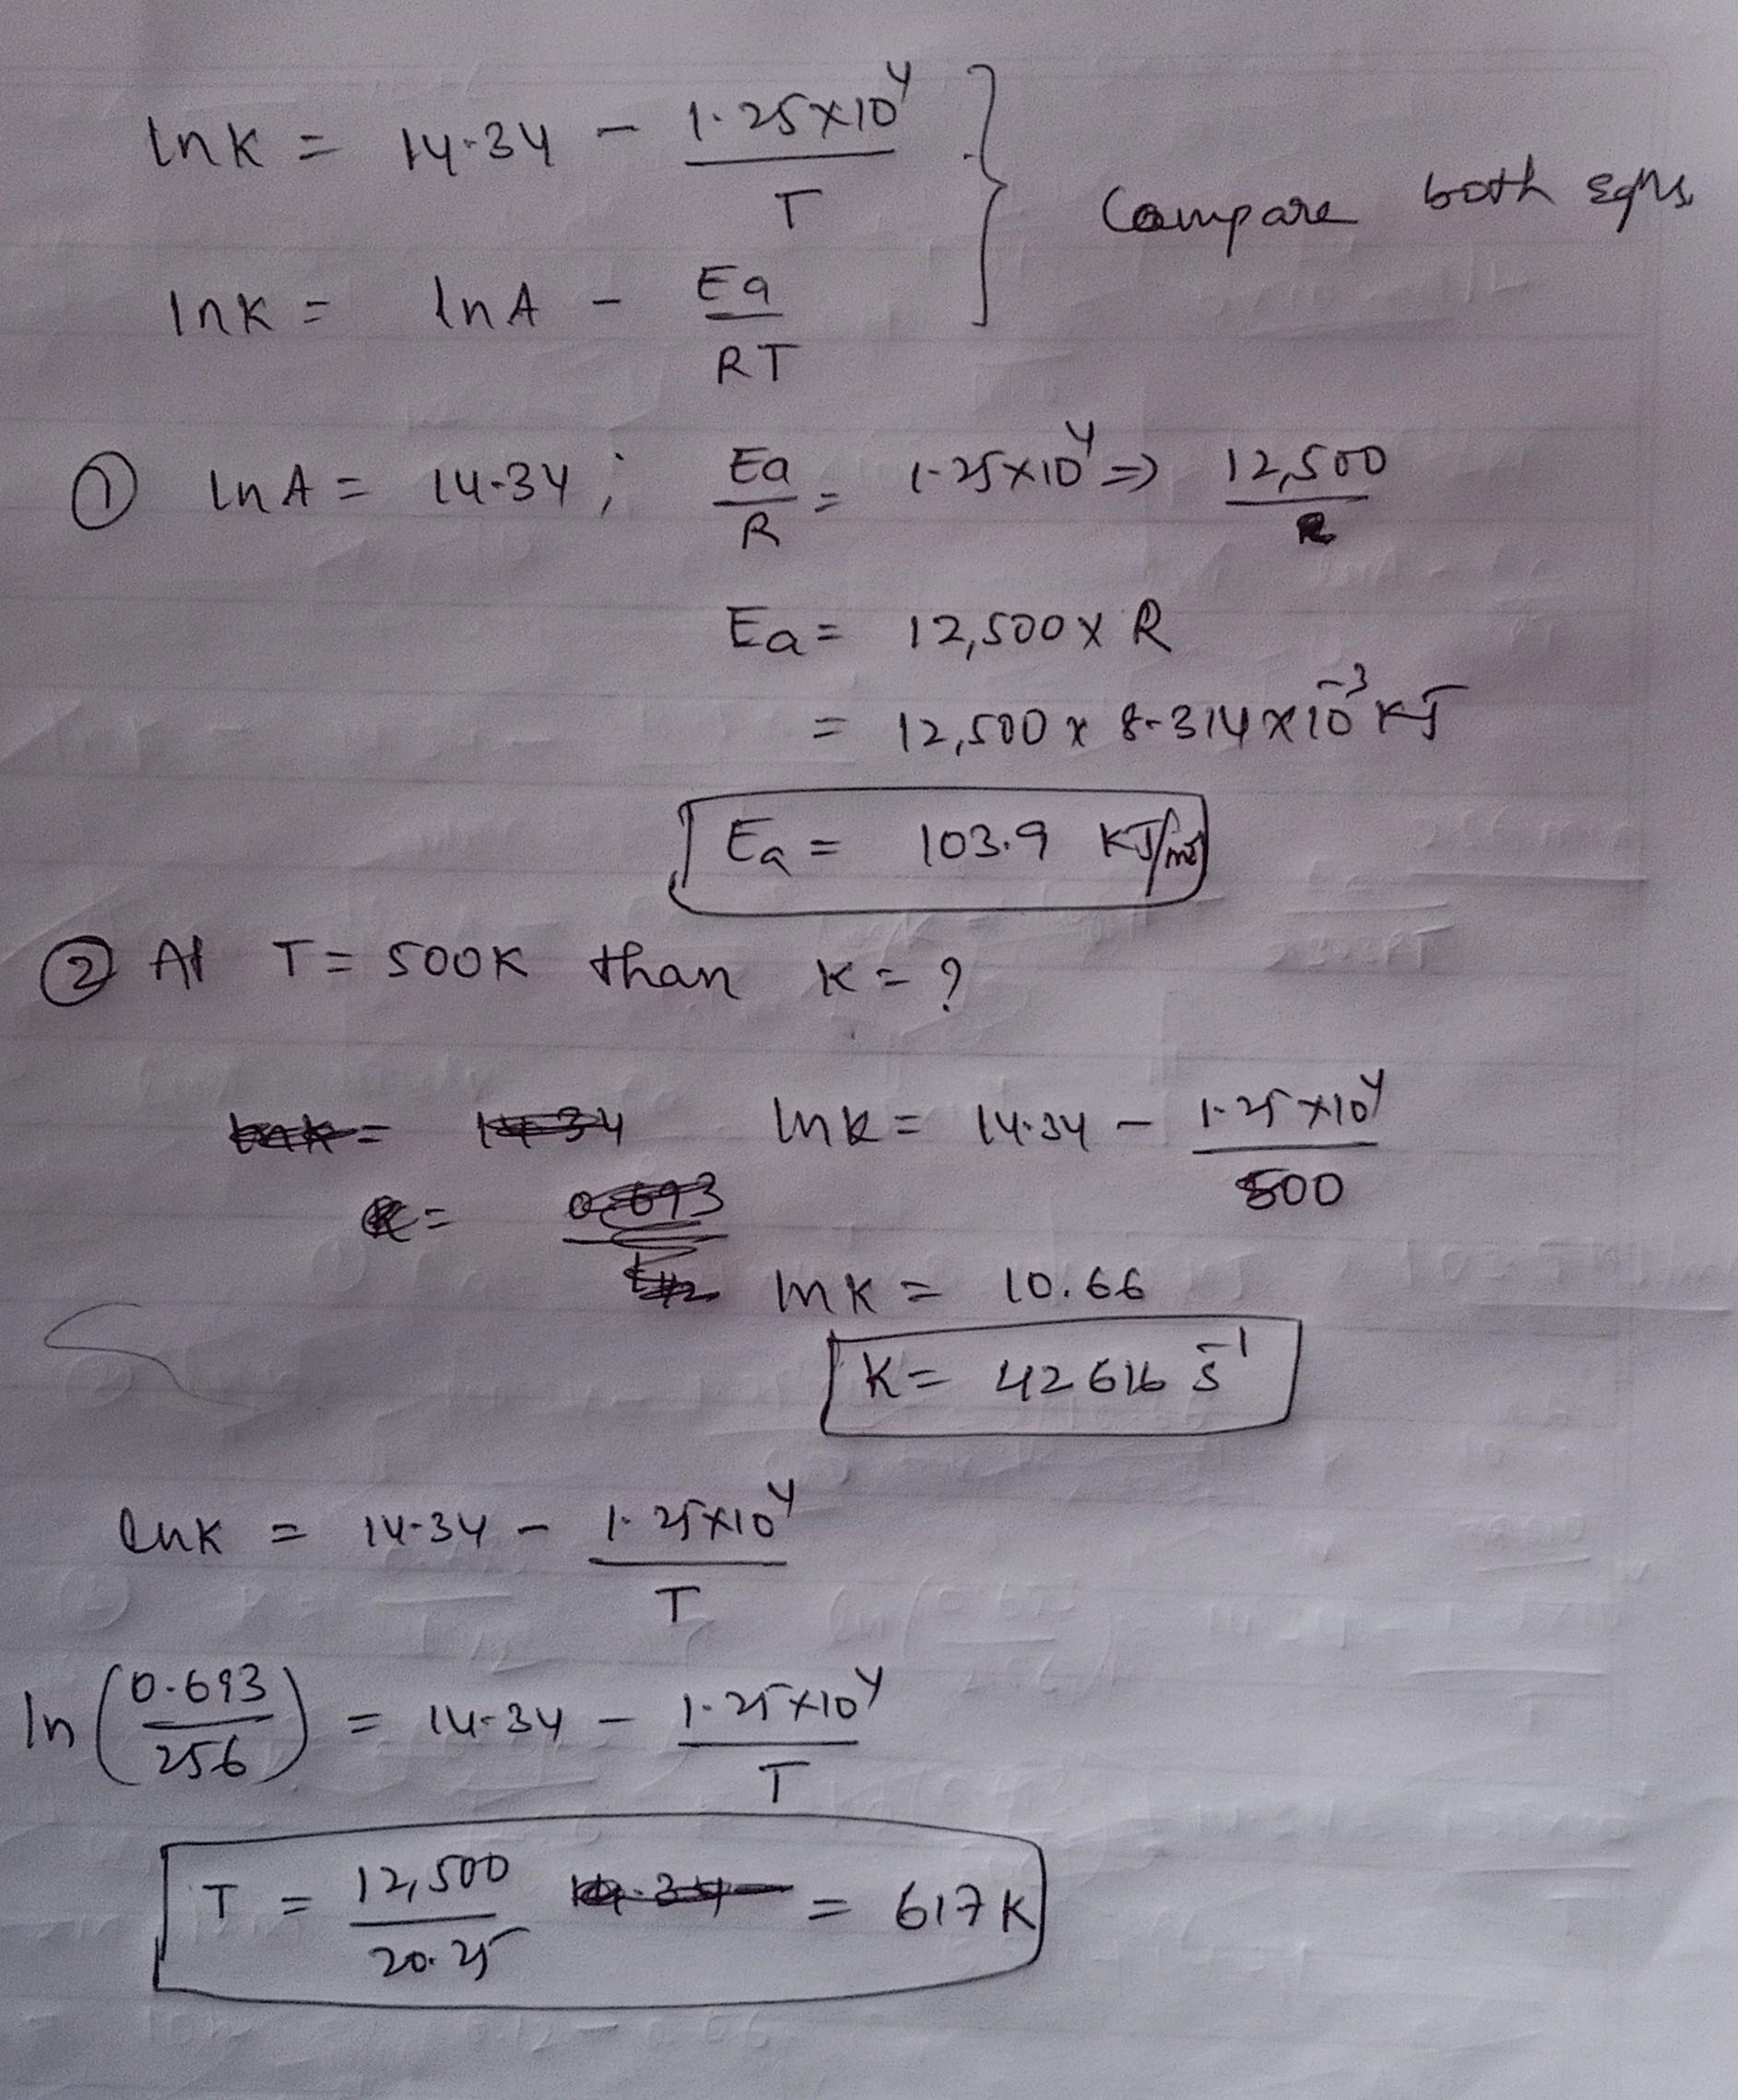 lnK = 14.34 - 1.25×10⁴/T
Compare both Eqns
lnK = lnA - Ea/RT
① lnA = 14.34 ; Ea/R = 1.25×10⁴ ⇒ 12,500
Ea = 12,500 × R
= 12,500 × 8.314×10⁻³ KJ
Ea = 103.9 KJ/mol
② At T = 500K than K = ?
lnK = 14.34 - 1.25×10⁴/500
lnK = 10.66
K = 42616 s⁻¹
lnK = 14.34 - 1.25×10⁴/T
ln(0.693/256) = 14.34 - 1.25×10⁴/T
T = 12,500/20.25 = 617K